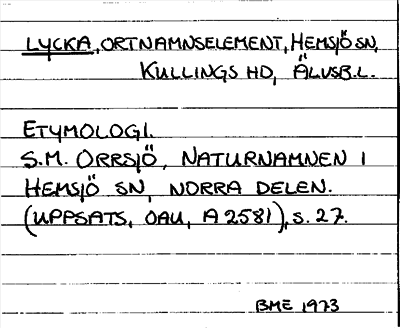 LYCKA, ORTNAMNSELEMENT, HEMSJÖ SN,
KULLINGS HD, ÄLVSB.L.
ETYMOLOGI.
S.M. ORRSJÖ, NATURNAMNEN I
HEMSJÖ SN, NORRA DELEN.
(UPPSATS, OAU, A 2581), S. 27.
BME 1973